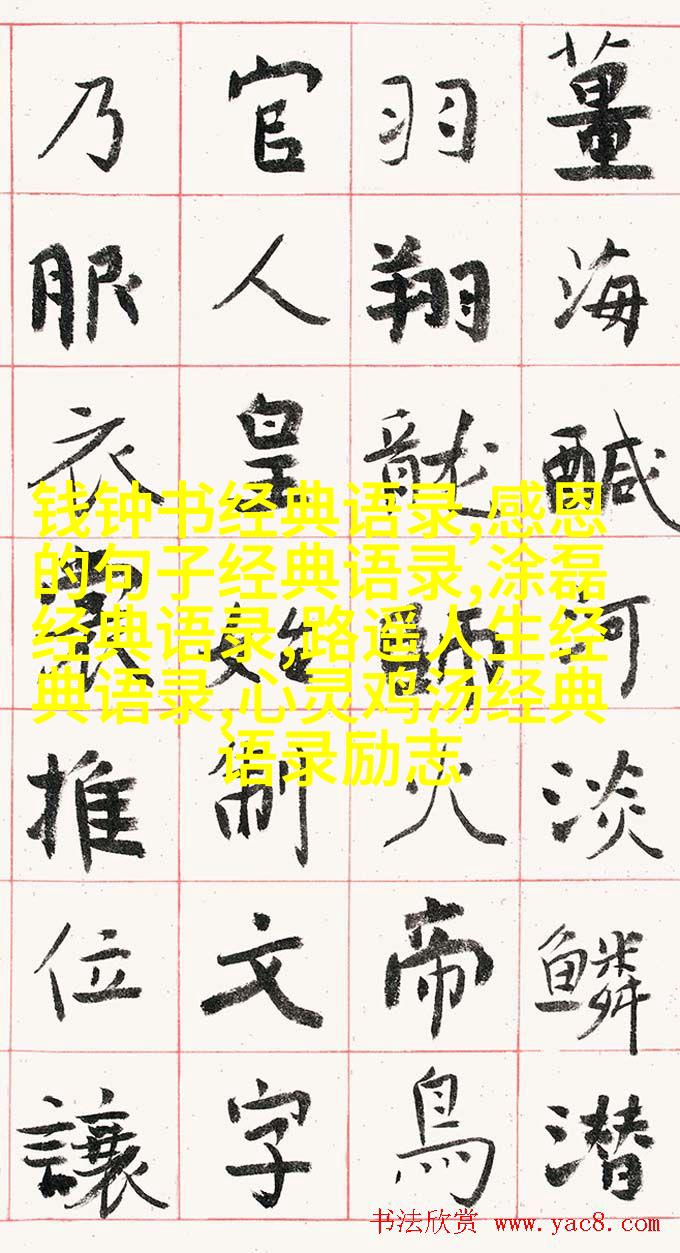 薑海醎河淡鱗潜
羽翔龍師火帝鳥
官人皇始制文字
乃服衣裳推位讓
钱钟书经典语录,感恩
的句子经典语录,涂磊
经典语录,路遥人生经
典语录,心灵鸡汤经典
语录励志
书法欣赏 www.yac8.com